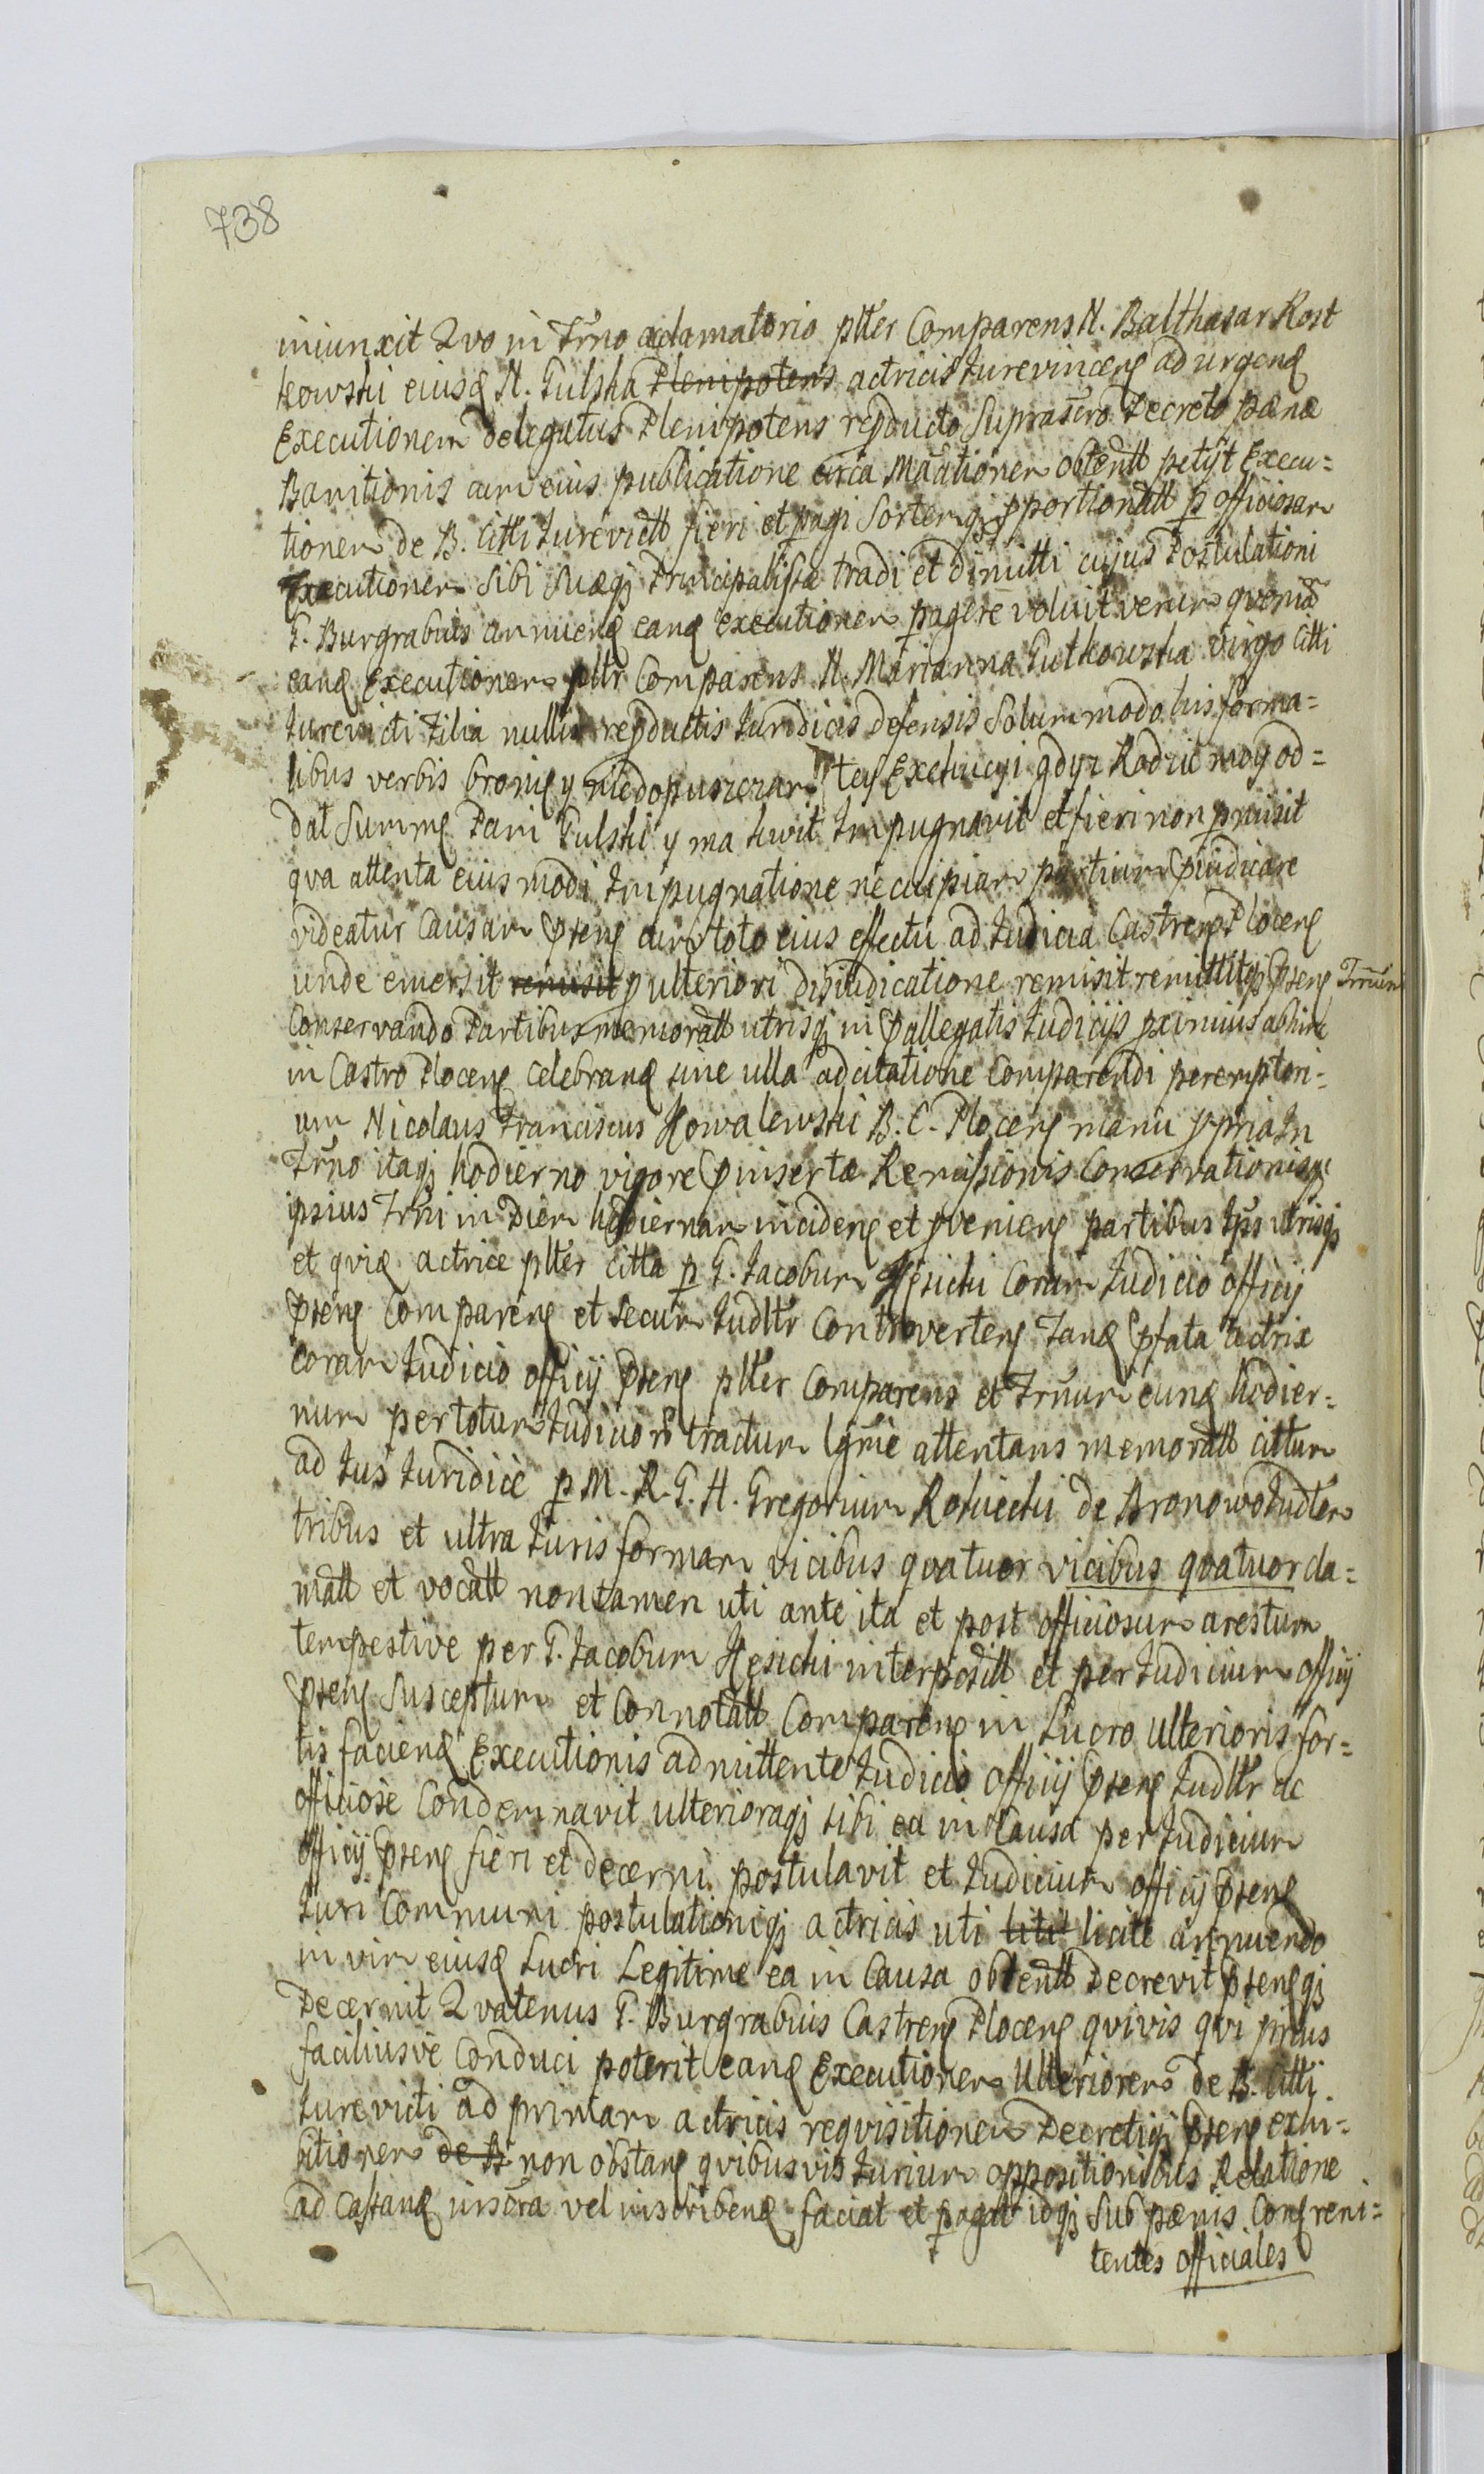 738
iniunxit Qvo in Trno acclamatorio plter Comparens N. Balthasar Rost
kowski eiusd N. Gulska Plenipotens actricis Jurevincens ad urgend
Executionem delegatus Plenipotens reproducto Suprascro Decreto pænæ
Banitionis cum eius publicatione circa Mationem obtentt petijt Execu=
tionem de B. Citti Jurevictt fieri et pagi Sortemqz pportionatt p officiosam
Executionem Sibi Suæqz Principalissæ tradi et dimitti cujus Postulationi
G. Burgrabius annuend eand executionem pagere voluit verum qvoniã
eand Executionem pltr Comparens N. Marianna Gutkowska virgo Citti
Jurevicti Filia nullis reproductis Juridicis defensis Solummodo his forma=
libus verbis bronię y niedopuszczam tey Exekucyi gdyz Rodzic moy od=
dał Summę Pani Gulski y ma kwit Impugnavit et fieri non prmisit
qva attenta eiusmodi Impugnatione ne cuipiam partium pjudicare
videatur Causam psens cum toto eius effectu ad Judicia Castrens Plocens
unde emersit remisit p ulteriori dijudicatione remisit remittitqz psens Trnum
Conservando Partibus memoratt utrisqz in pallegatis Judicijs pximius abhinc
in Castro Plocens Celebrand sine ulla adcitatione Comparendi peremptori=
um Nicolaus Franciscus Kowalewski B. C. Plocens manu ppria In
Trno itaqz hodierno vigore pinsertæ Remissionis Conservationisqz
ipsius Trni in Diem hodiernam incidens et pveniens partibus Ips utrisqz
et qvid actrice plter Citta p G. Jacobum Kęsicki Coram Judicio officij
psens Comparens et Secum Judltr Controvertens Tand pfata Actrix
coram Judicio officij psens plter Comparens et Trnum eund hodier=
num per totum Judicior tractum lgme attentans memoratt cittum
ad Jus Juridice p M. R. G. N. Gregorium Rokicki de Bronowo Judlter
tribus et ultra Juris formam vicibus qvatuor vicibus qvatuor cla=
matt et vocatt non tamen uti ante ita et post officiosum arestum
tempestive per G. Jacobum Kęsicki interpositt et per Judicium officij
psens Susceptum et Connotatt Comparens in Lucro Ulterioris for=
tis faciend Executionis admittente Judicio Officij psens Judltr ac
officiose Condemnavit ulterioraqz sibi ea in Causa per Judicium
officij psens fieri et decerni postulavit et Judicium officij psens
Juri Communi postulationiqz actricis uti licit licitt annuendo
in vim eiusd Lucri Legitime ea in Causa obtentt Decrevit psensqz
Decernit Qvatenus G. Burgrabius Castrens Plocens qvivis qvi prius
faciliusve Conduci poterit eand Executionem Ulteriorem de B. Citti
Jurevicti ad primam actricis reqvisitionem Decretiqz psens exhi=
bitionem de B non obstans qvibusvis Jurium oppositionibus Relatione
ad Castand inscra vel inscribend faciat et pagat idqz Sub pænis Contreni=
tentes officiales